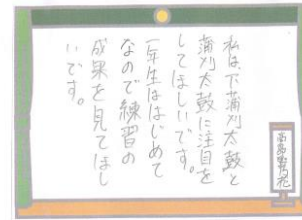 私は、下蒲刈太鼓と
蒲刈太鼓に注目を
してほしいです。
一年生ははじめて
なので練習の
成果を見てほし
いです。